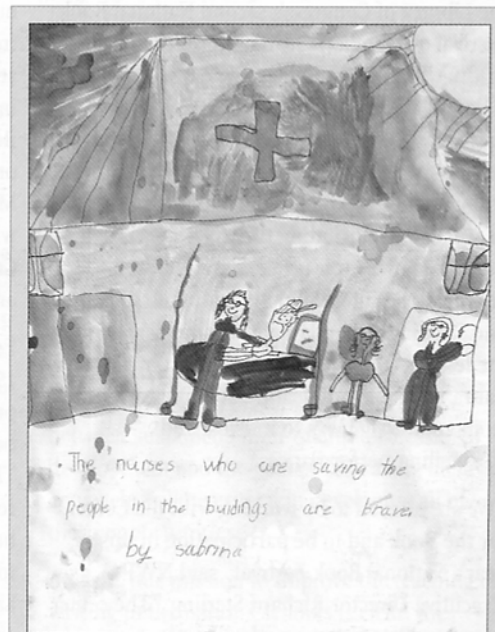 . The nurses who are saving the
people in the buidings are brave.
by sabrina